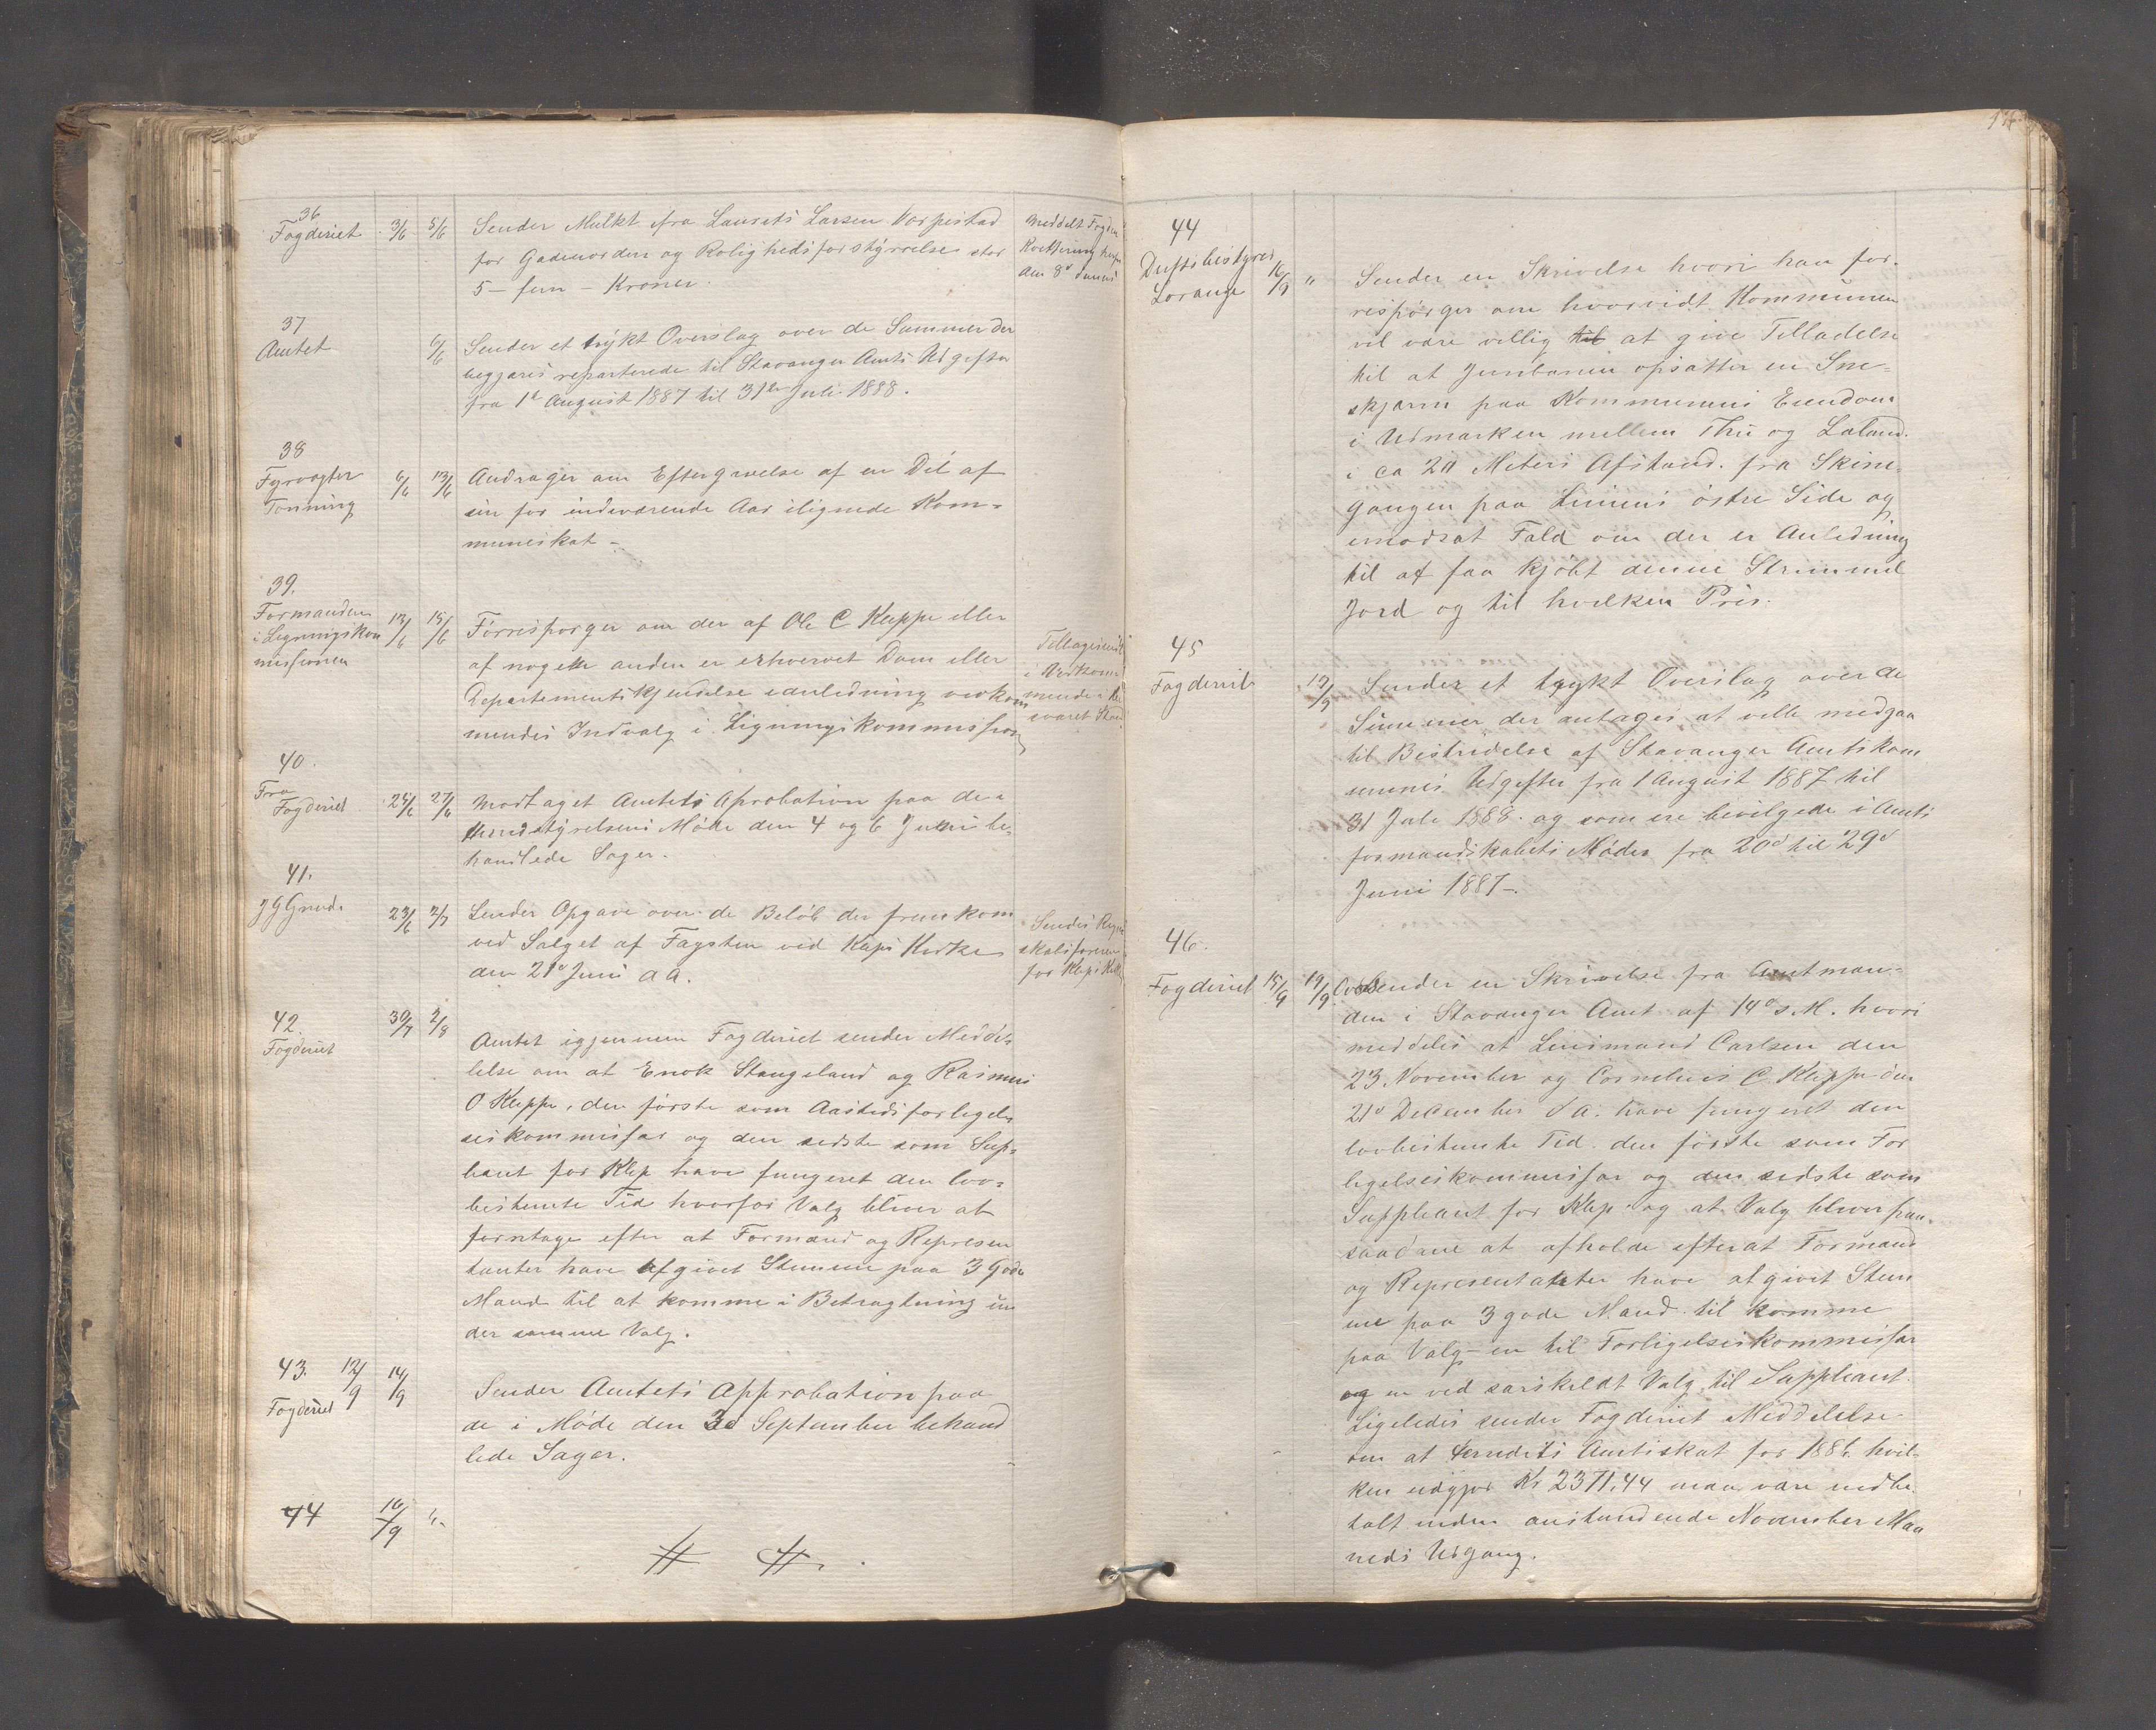 36
Fogderiet 3/6 5/6 Sender Mulkt fra Laurits Larsen Varpestad
for Gadeuorden og Rolighedsforstyrrelse stor
5 - fem - Kroner.
Meddelt Fogden
den 8d
37
Amtet 6/6 Sender et trykt Overslag over de Summer der
begjæres reparterede til Stavanger Amts Udgifter
fra 1te August 1887 til 31te Juli 1888.
38
Fyrvogter Tonning 6/6 13/6 Andrager om Eftergivelse af en Del af
sin for indeværende Aar ilignede Kom-
muneskat -
39.
Formanden i Ligningskom missionen 13/6 15/6 Forrespørger om der af Ole C Kleppe eller
af nogen anden er erhvervet Dom eller
Departementskjendelse i anledning vedkom
mendes Indvalg i Ligningskommission
Tilbagesendt
i Vedkom
mende
40.
Fra Fogderiet 25/6 27/6 Modtaget Amtets Aprobation paa de i
Herredstyrelsens Møde den 4 og 6 Juni be-
handlede Sager.
41.
23/6 2/7 Sender Opgave over de Beløb der fremkom
ved Salget af Tagsten ved Kleps Kirke
den 21d Juni d A.
Sendes Regn
skabsføreren
for Klep
42.
Fogderiet 30/7 2/8 Amtet igjennem Fogderiet sender Meddel
lelse om at Enok Stangeland og Rasmus
O Kleppe, den første som Aastedsforligel
seskommissær og den sidste som Sup-
leant for Klep have fungeret den lov-
bestemte Tid hvorfor Valg bliver at
foretage efter at Formænd og Represen
tanter have afgivet Stemme paa 3 Gode
Mænd til at komme i Betragtning un
der samme Valg.
43.
Fogderiet 12/9 14/9 Sender Amtets Approbation paa
de i Møde den 3d September behand
lede Sager.
44 16/9 "
44
Driftsbestyrer Lorange 16/9 " Sender en Skrivelse hvori han for-
respørger om hvorvidt Kommunen
vil være villig til at give Tilladelse
til at Jernbanen opsætter en Sne-
skjærm paa Kommunens Eiendom
i Udmarken mellem Thu og Laland.
i ca 20 Meters Afstand fra Skine-
gangen paa Liniens østre Side og
i modsat Fald om der er Anledning
til at faa kjøbt denne Strimmel
Jord og til hvilken Pris.
45
Fogderiet 17/9 Sender et trykt Overslag over de
Summer der antages at ville medgaa
til Bestridelse af Stavanger Amtskom
munes Udgifter fra 1 August 1887 til
31 Juli 1888. og som ere bevilgede i Amts
formandskabets Møder fra 20d til 29d
Juni 1887.
46.
Fogderiet 15/9 19/9 Oversender en Skrivelse fra Amtman-
den i Stavanger Amt af 14d s. M. hvori
meddeles at Lensmand Carlsen den
23. November og Cornelius C Kleppe den
21d December d a. have fungeret den
lovbestemte Tid. den første som For
ligelseskommissær og den sidste som
Suppleant for Klep og at Valg bliver paa-
saadane at afholde efterat Formænd
og Representanter have afgivet Stem
me paa 3 gode Mænd til komme
paa Valg - en til Forligelseskommissær
og en ved særskildt Valg til Suppleant.
Ligeledes sender Fogderiet Meddelelse
om at Herredets Amtskat for 1886 hvil-
ken udgjør Kr 2371,44 maa være indbe
talt inden anstundende November Maa
neds Udgang.